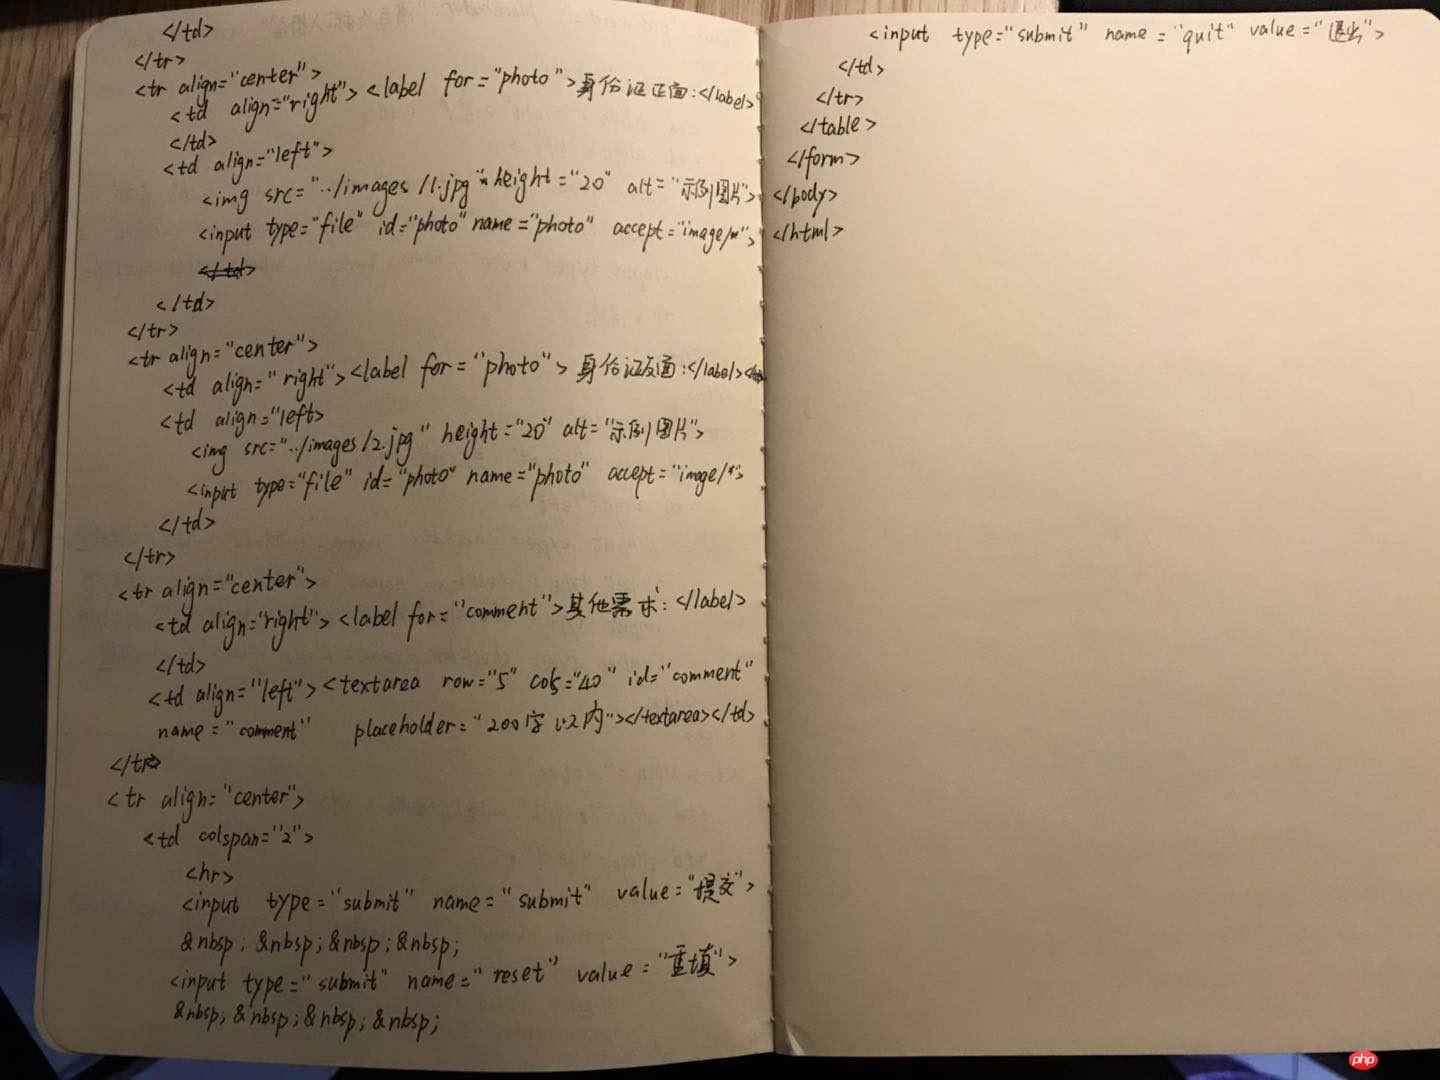 </td>
</tr>
<tr align="center">
<td align="right"><label for="photo">身份证正面:</label>
</td>
<td align="left">
<img src="../images/1.jpg" height="20" alt="示例图片">
<input type="file" id="photo" name="photo" accept="image/*">
</td>
</tr>
<tr align="center">
<td align="right"><label for="photo">身份证反面:</label>
<td align="left>
<img src="../images/2.jpg" height="20" alt="示例图片">
<input type="file" id="photo" name="photo" accept="image/*">
</td>
</tr>
<tr align="center">
<td align="right"><label for="comment">其他需求:</label>
</td>
<td align="left"><textarea row="5" cols="40" id="comment"
name="comment" placeholder="200字以内"></textarea></td>
</tr>
<tr align="center">
<td colspan="2">
<hr>
<input type="submit" name="submit" value="提交">
&nbsp;&nbsp;&nbsp;&nbsp;
<input type="submit" name="reset" value="重填">
&nbsp;&nbsp;&nbsp;&nbsp;
<input type="submit" name="quit" value="退出">
</td>
</tr>
</table>
</form>
</body>
</html>
php